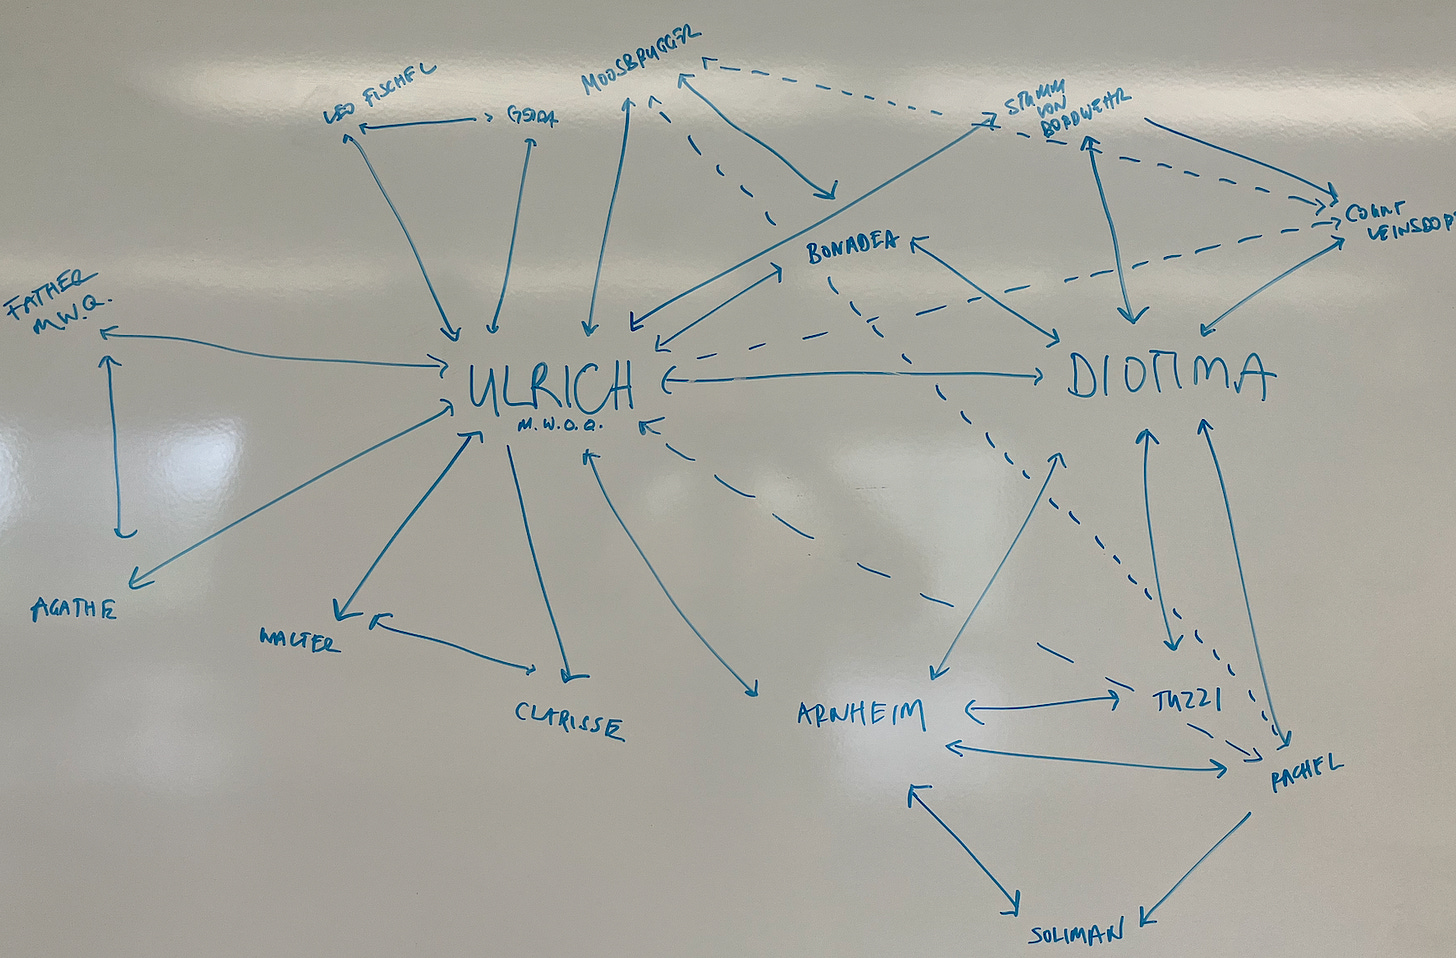 MOOSBRUGGER
LEO FISCHEL
GERDA
STUMM
VON
BORDWEHR
COUNT
LEINSDOR
BONADEA
FATHER
M.W.Q.
ULRICH
M.W.O.Q.
DIOTIMA
AGATHE
WALTER
CLARISSE
ARNHEIM
TUZZI
RACHEL
SOLIMAN